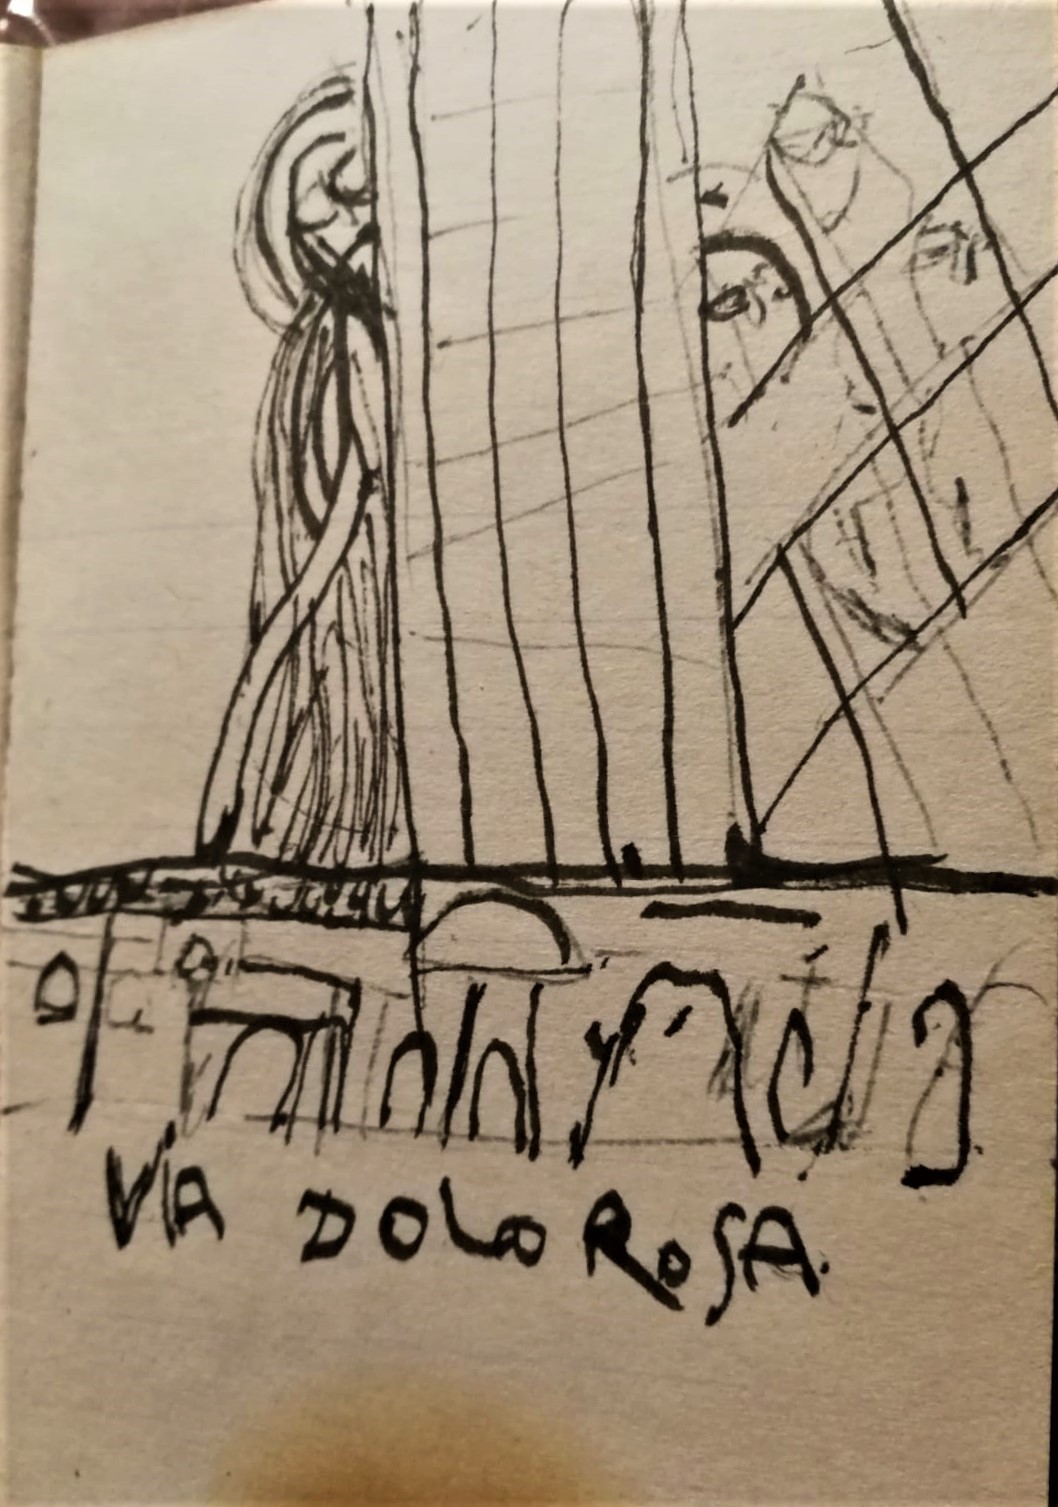 VIA DOLOROSA.